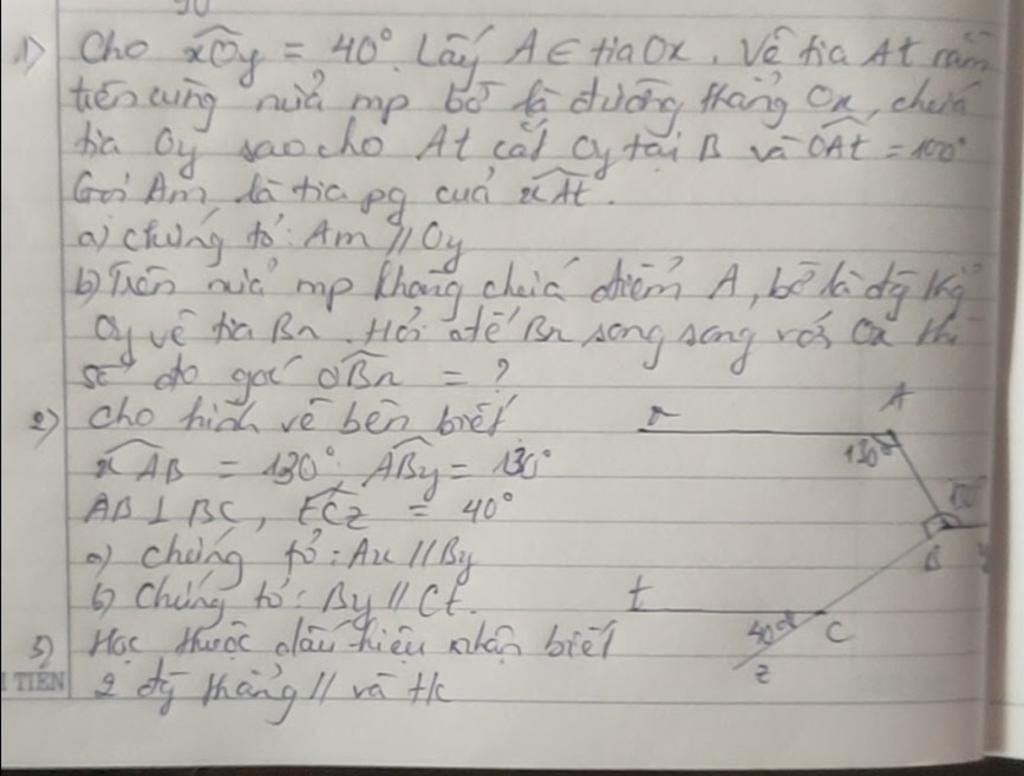 1) Cho xOy = 40°. Lấy A ∈ tia Ox. Vẽ tia At nằm
trên cùng nửa mp bờ là đường thẳng Ox, chứa
tia Oy sao cho At cắt Oy tại B và OAt = 100°
Gọi Am là tia pg của xAt.
a) chứng tỏ: Am // Oy
b) Trên nửa mp không chứa điểm A, bờ là đg thg
Oy vẽ tia Bn. Hỏi để Bn song song với Ox thì
số đo góc OBn = ?
2) Cho hình vẽ bên biết
xAB = 130°; ABy = 130°
AB ⊥ BC, tCz = 40°
a) Chứng tỏ: Ax // By
b) Chứng tỏ: By // Ct.
3) Học thuộc dấu hiệu nhận biết
2 đg thẳng // và t/c
x
A
130°
B
t
40°
C
z
TIEN